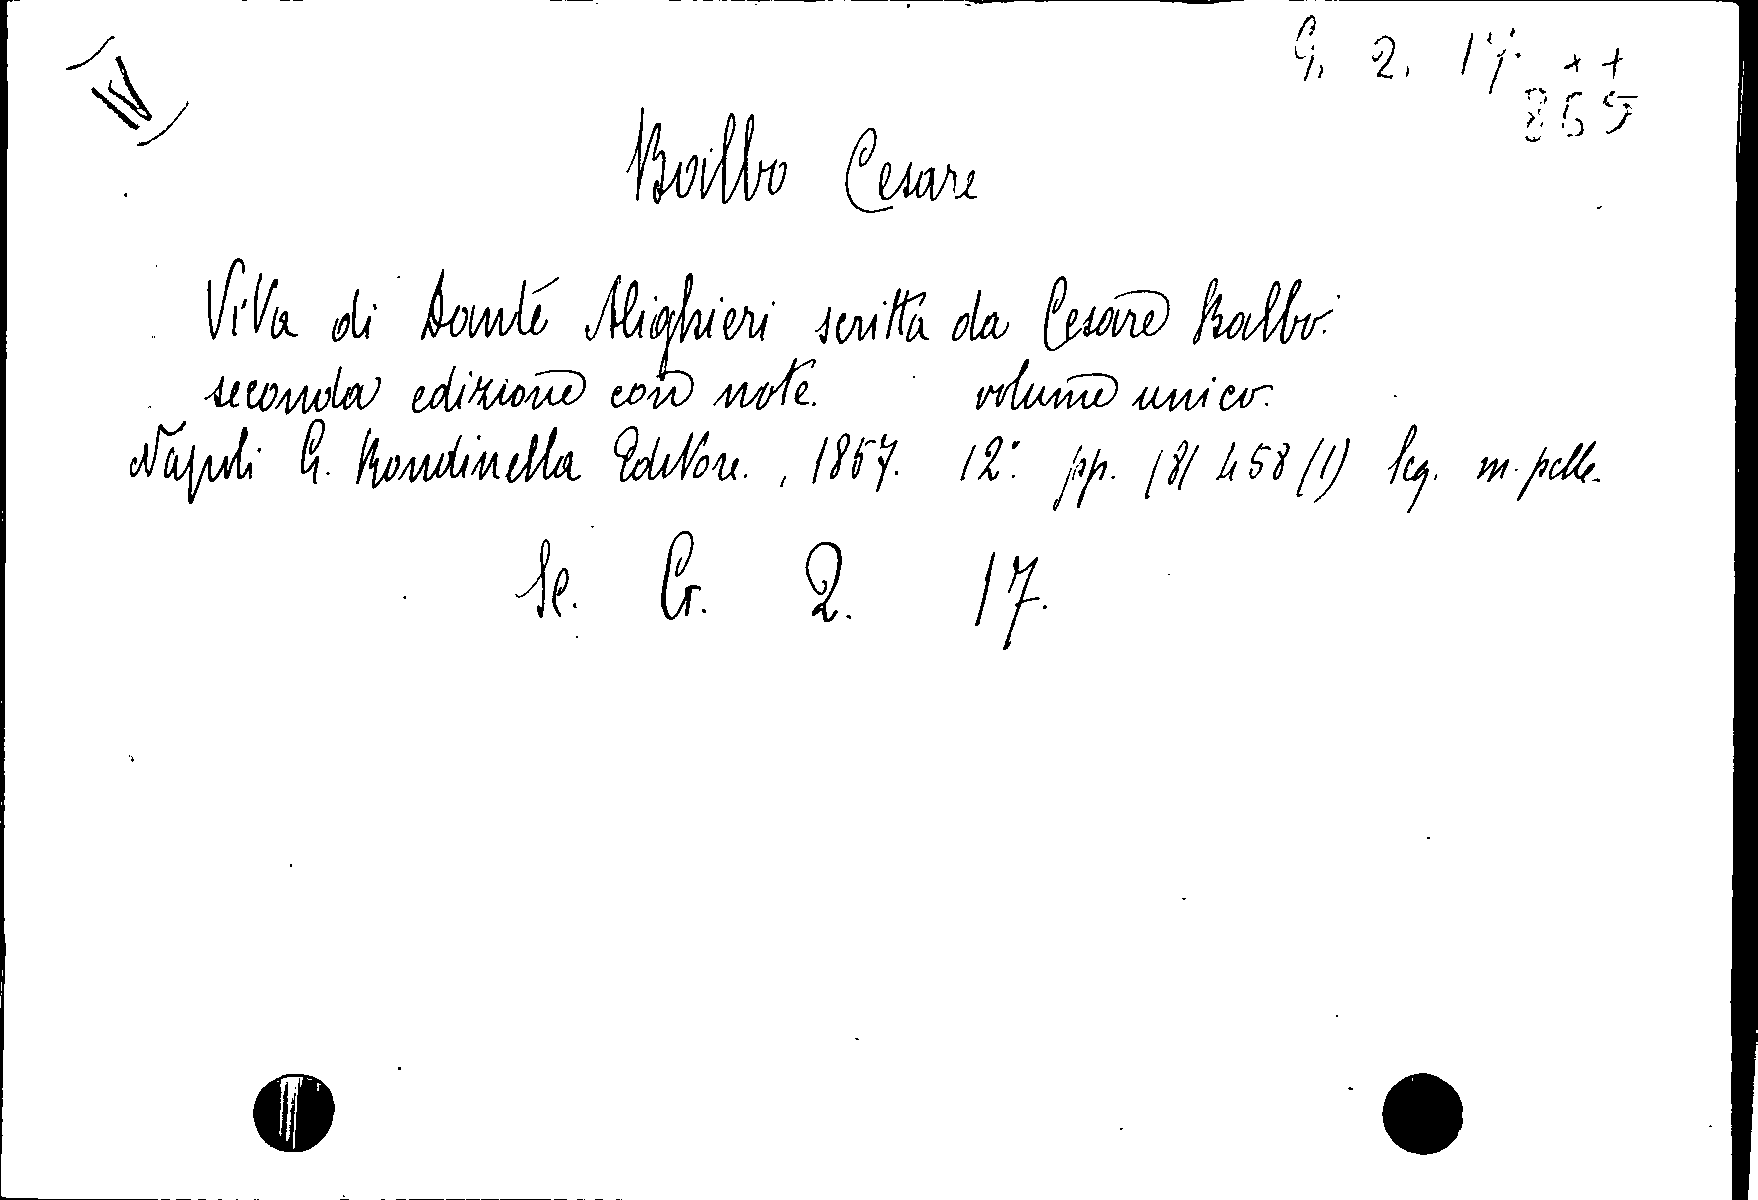 (IV)
G. 2. 17. ++
865
Balbo Cesare
Vita di Dante Alighieri scritta da Cesare Balbo.
seconda edizione con note. volume unico.
Napoli G. Rondinella Editore., 1857. 12º pp. (8) 458 (1) leg. m. pelle.
Sc. G. 2. 17.